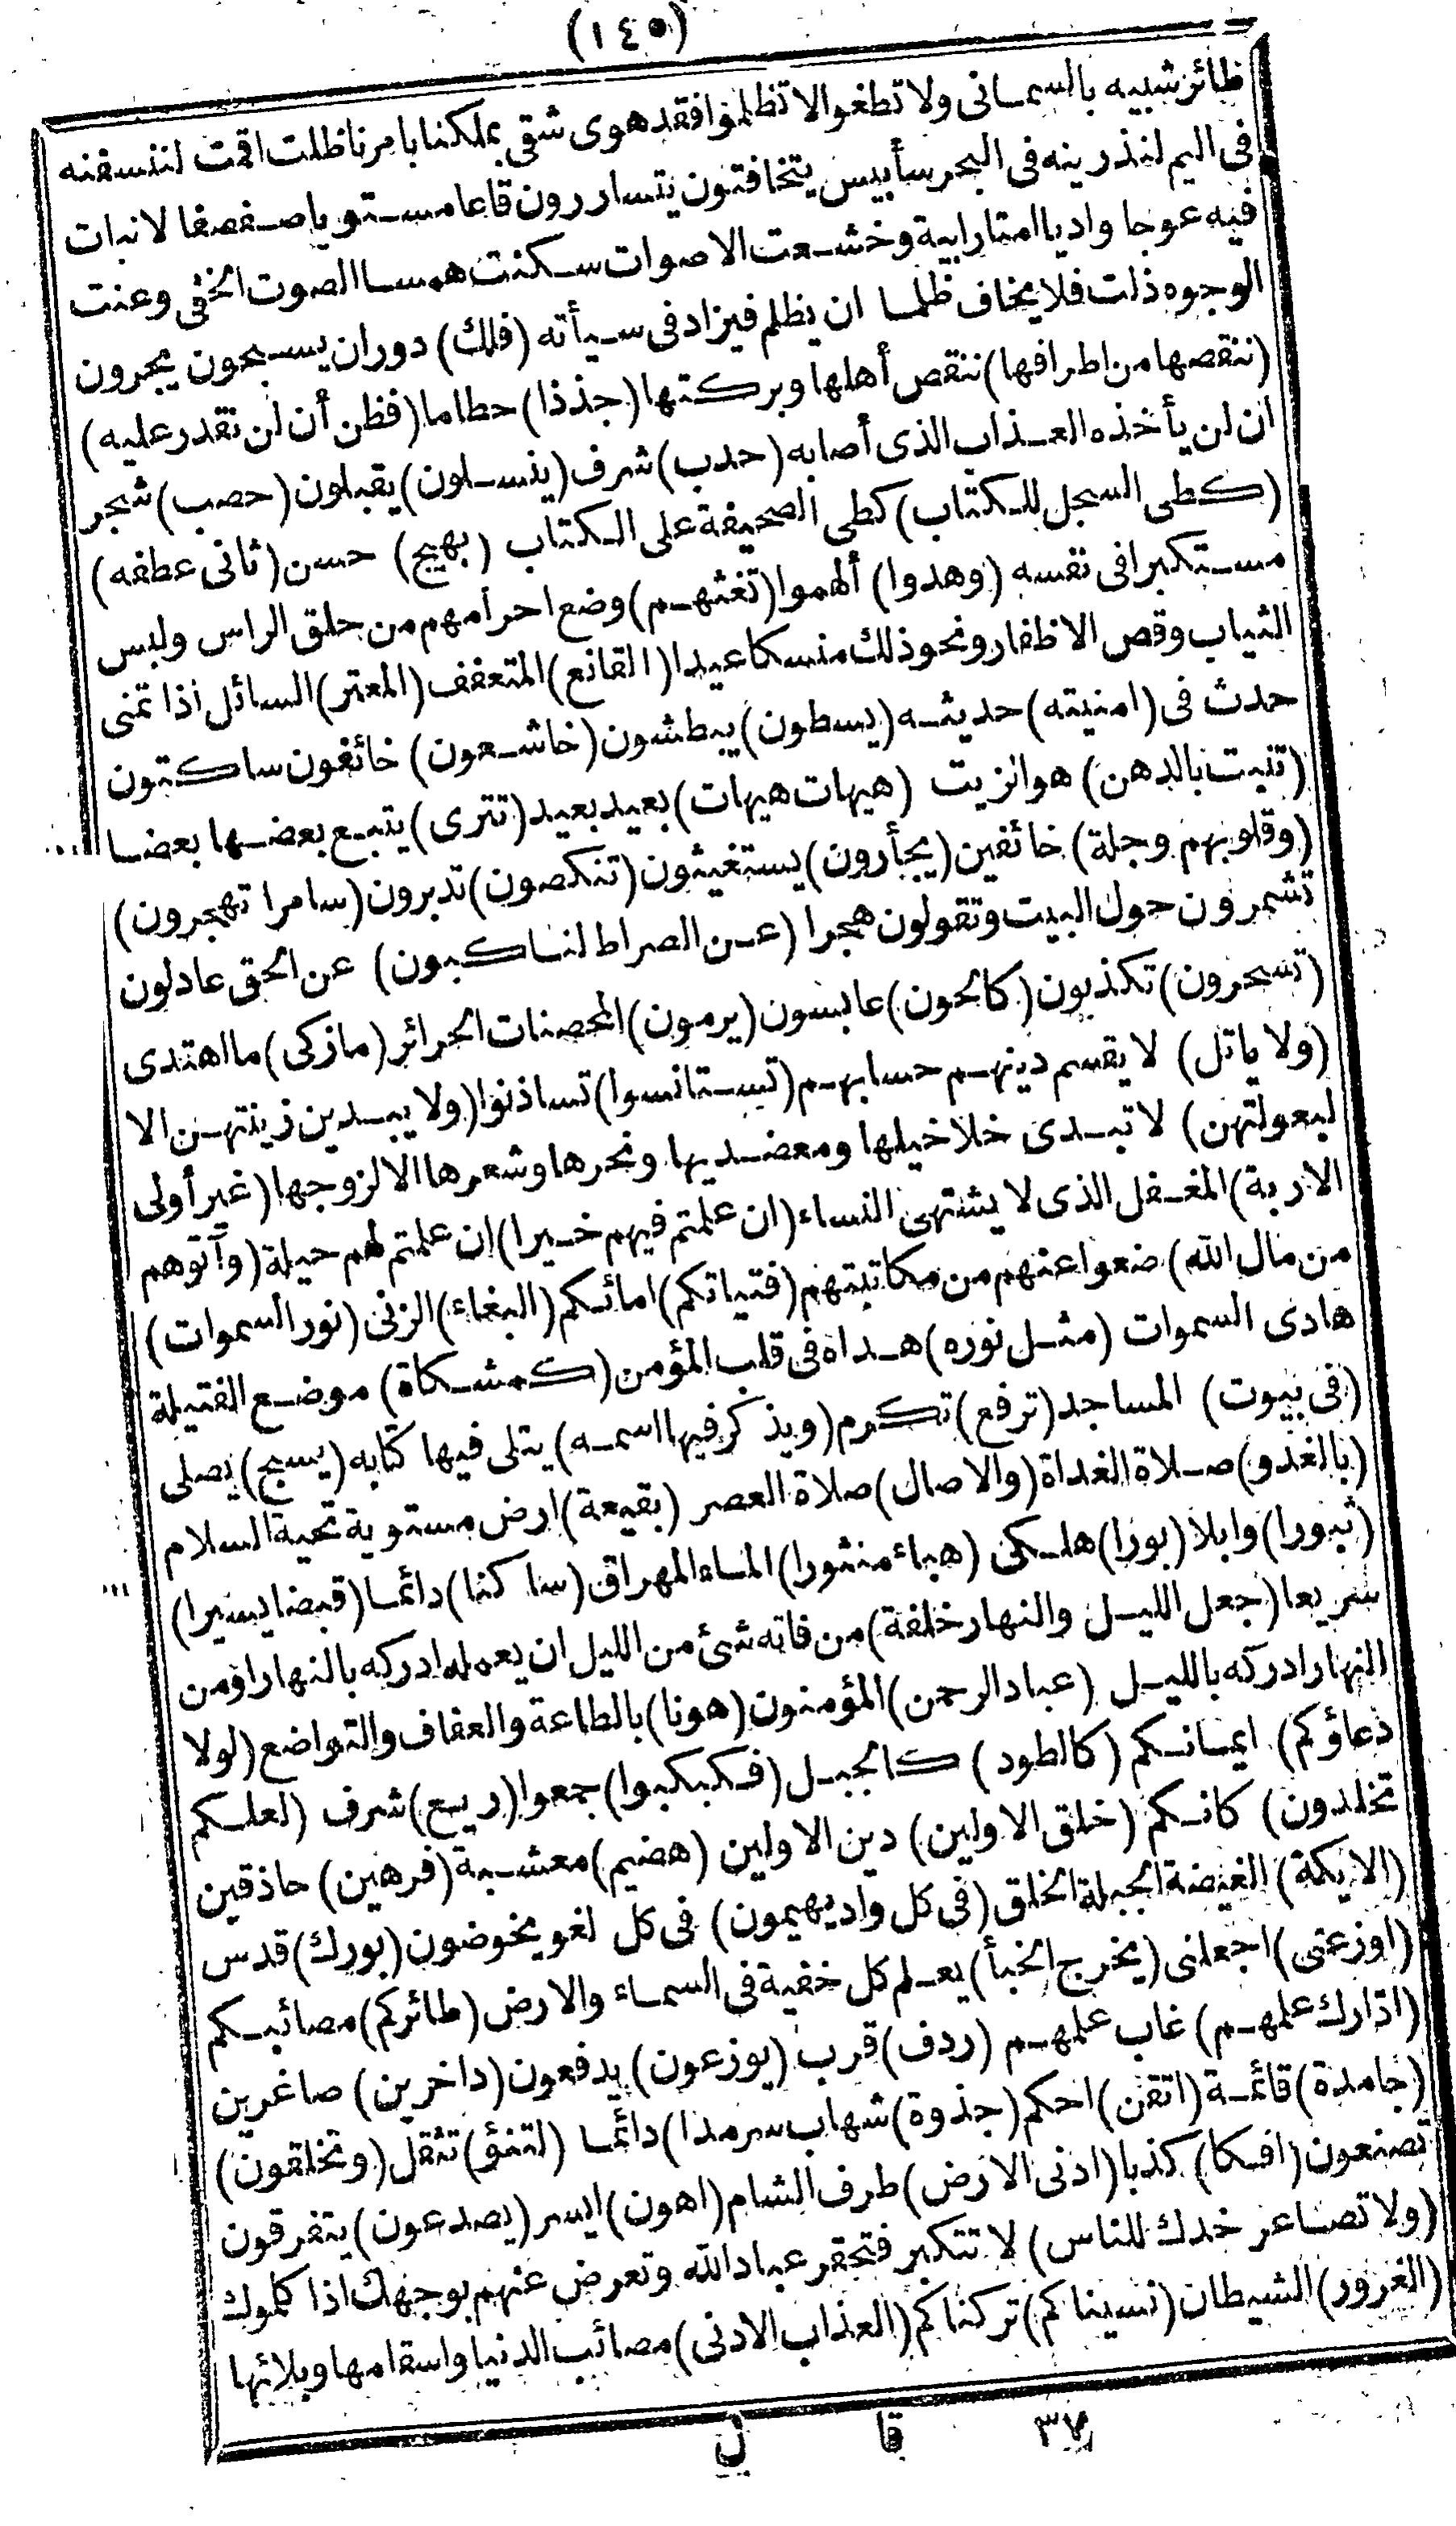 (١٤٥)
طائر شبيه بالسمانى ولا تطغوا لا تظلموا فقد هوى شقى بملكنا بامرنا ظلت اقمت لننسفنه
فى اليم لنذرينه فى البحر سأ بيس يتخافتون يتساررون قاعا مستويا صفصفا لا نبات
فيه عوجا واديا امتا رابية وخشعت الاصوات سكنت همسا الصوت الخفى وعنت
الوجوه ذلت فلا يخاف ظلما ان يظلم فيزاد فى سيأته (فلك) دوران يسبحون يجرون
(ننقصها من اطرافها) ننقص أهلها وبركتها (جذذا) حطاما (فظن أن لن نقدر عليه)
ان لن يأخذه العذاب الذى أصابه (حدب) شرف (ينسلون) يقبلون (حصب) شجر
(كطى السجل للكتاب) كطى الصحيفة على الكتاب (بهيج) حسن (ثانى عطفه)
مستكبرا فى نفسه (وهدوا) ألهموا (تفثهم) وضع احرامهم من حلق الراس ولبس
الثياب وقص الاظفار ونحو ذلك منسكا عيدا (القانع) المتعفف (المعتر) السائل اذا تمنى
حدث فى (امنيته) حديثه (يسطون) يبطشون (خاشعون) خائفون ساكتون
(تنبت بالدهن) هو الزيت (هيهات هيهات) بعيد بعيد (تترى) يتبع بعضها بعضا
(وقلوبهم وجلة) خائفين (يجأرون) يستغيثون (تنكصون) تدبرون (سامرا تهجرون)
تشمرون حول البيت وتقولون هجرا (عن الصراط لناكبون) عن الحق عادلون
(تسحرون) تكذبون (كالحون) عابسون (يرمون) المحصنات الحرائر (مازكى) ما اهتدى
(ولا ياتل) لا يقسم دينهم حسابهم (تستانسوا) تساذنوا (ولا يبدين زينتهن الا
لبعولتهن) لا تبدى خلاخيلها ومعضديها ونحرها وشعرها الا لزوجها (غير أولى
الاربة) المغفل الذى لا يشتهى النساء (ان علمتم فيهم خيرا) ان علمتم لهم حيلة (وآتوهم
من مال الله) ضعوا عنهم من مكاتبتهم (فتياتكم) امائكم (البغاء) الزنى (نور السموات)
هادى السموات (مثل نوره) هداه فى قلب المؤمن (كمشكاة) موضع الفتيلة
(فى بيوت) المساجد (ترفع) تكرم (ويذكر فيها اسمه) يتلى فيها كتابه (يسبح) يصلى
(بالغدو) صلاة الغداة (والاصال) صلاة العصر (بقيعة) ارض مستوية تحية السلام
(ثبورا) وابلا (بورا) هلكى (هباء منثورا) الماء المهراق (ساكنا) دائما (قبضا يسيرا)
سريعا (جعل الليل والنهار خلفة) من فاته شئ من الليل ان يعمله ادركه بالنهار او من
النهار ادركه بالليل (عباد الرحمن) المؤمنون (هونا) بالطاعة والعفاف والتواضع (لولا
دعاؤكم) ايمانكم (كالطود) كالجبل (فكبكبوا) جمعوا (ريع) شرف (لعلكم
تخلدون) كانكم (خلق الاولين) دين الاولين (هضيم) معشبة (فرهين) حاذقين
(الايكة) الغيضة الجبلة الخلق (فى كل واد يهيمون) فى كل لغو يخوضون (بورك) قدس
(اوزعنى) اجعلنى (يخرج الخبأ) يعلم كل خفية فى السماء والارض (طائركم) مصائبكم
(ادّارك علمهم) غاب علمهم (ردف) قرب (يوزعون) يدفعون (داخرين) صاغرين
(جامدة) قائمة (اتقن) احكم (جذوة) شهاب سرمدا) دائما (لتنؤ) تثقل (وتخلقون)
تصنعون (افكا) كذبا (ادنى الارض) طرف الشام (اهون) ايسر (يصدعون) يتفرقون
(ولا تصاعر خدك للناس) لا تتكبر فتحقر عباد الله وتعرض عنهم بوجهك اذا كلموك
(الغرور) الشيطان (نسيناكم) تركناكم (العذاب الادنى) مصائب الدنيا واسقامها وبلائها
٣٧ قا ل